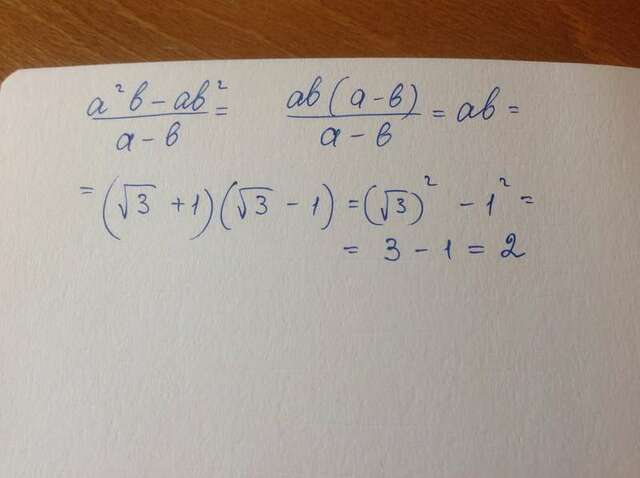 (a²b - ab²)/(a - b) = (ab(a - b))/(a - b) = ab =
= (√3 + 1)(√3 - 1) = (√3)² - 1² =
= 3 - 1 = 2